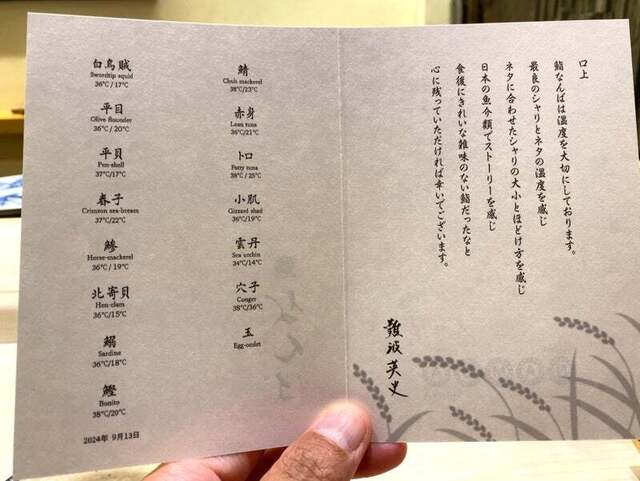 白烏賊
Swordtip squid
36℃/17℃
平目
Olive flounder
36℃/20℃
平貝
Pen-shell
37℃/17℃
春子
Crimson sea-bream
37℃/22℃
鯵
Horse-mackerel
36℃/19℃
北寄貝
Hen-clam
36℃/15℃
鰯
Sardine
36℃/18℃
鰹
Bonito
38℃/20℃
2024年 9月13日
鯖
Chub mackerel
38℃/23℃
赤身
Lean tuna
36℃/21℃
トロ
Fatty tuna
38℃/25℃
小肌
Gizzard shad
36℃/19℃
雲丹
Sea urchin
34℃/14℃
穴子
Conger
38℃/36℃
玉
Egg-omlet
口上
鮨なんばは温度を大切にしております。
最良のシャリとネタの温度を感じ
ネタに合わせたシャリの大小とほどけ方を感じ
日本の魚介類でストーリーを感じ
食後にきれいな雑味のない鮨だったなと
心に残っていただければ幸いでございます。
難波英史